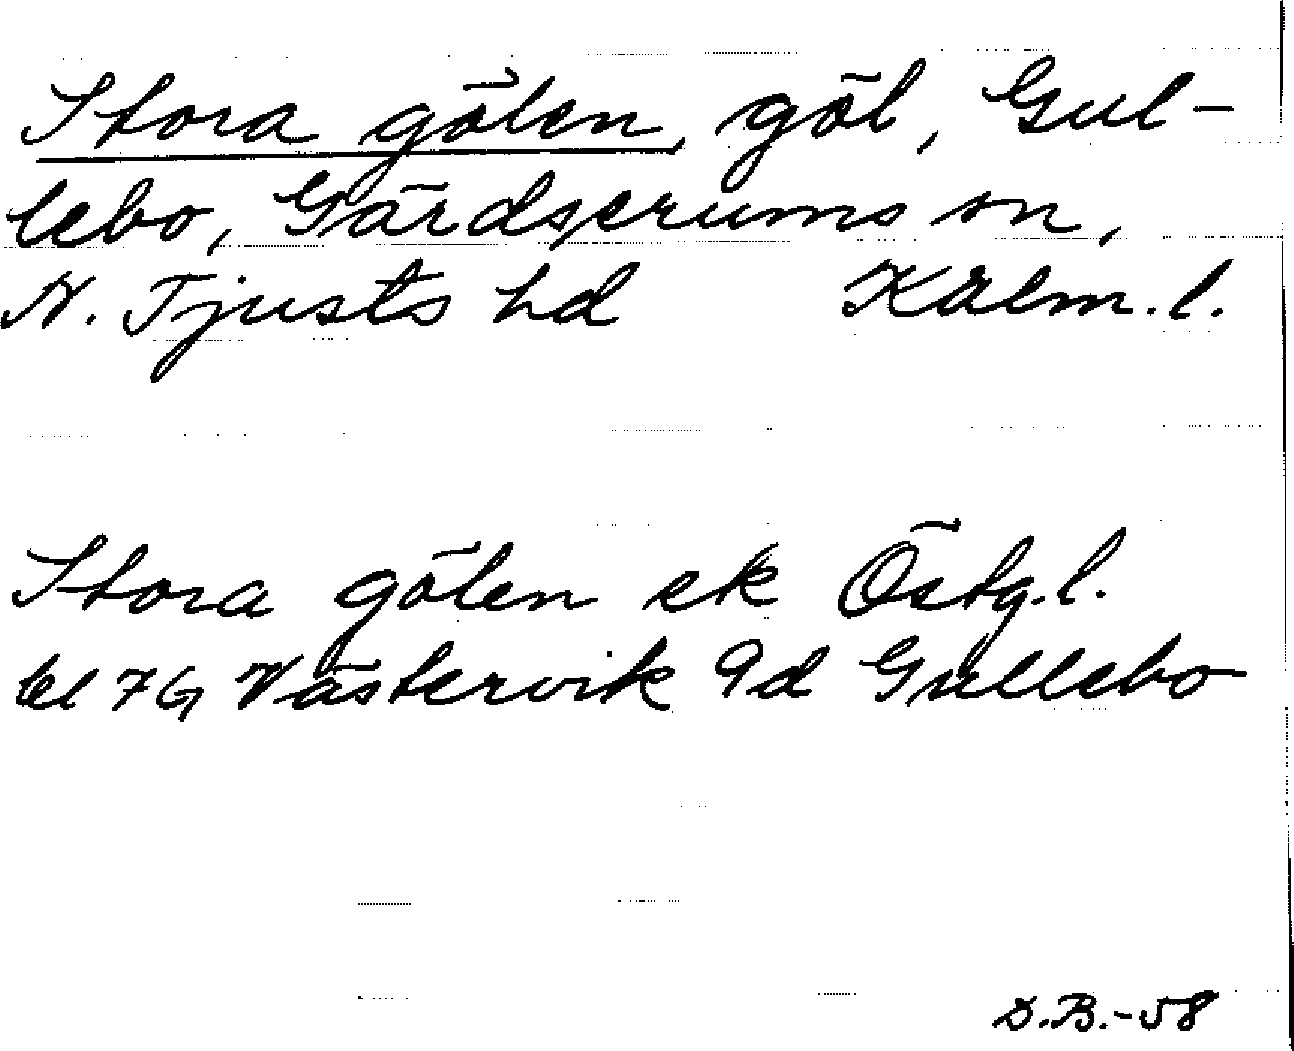 Stora gölen, göl, Gul-
lebo, Gärdserums sn,
N. Tjusts hd Kalm. l.
Stora gölen ek Östg. l.
bl 7G Västervik 9d Gullebo
D.B.-58